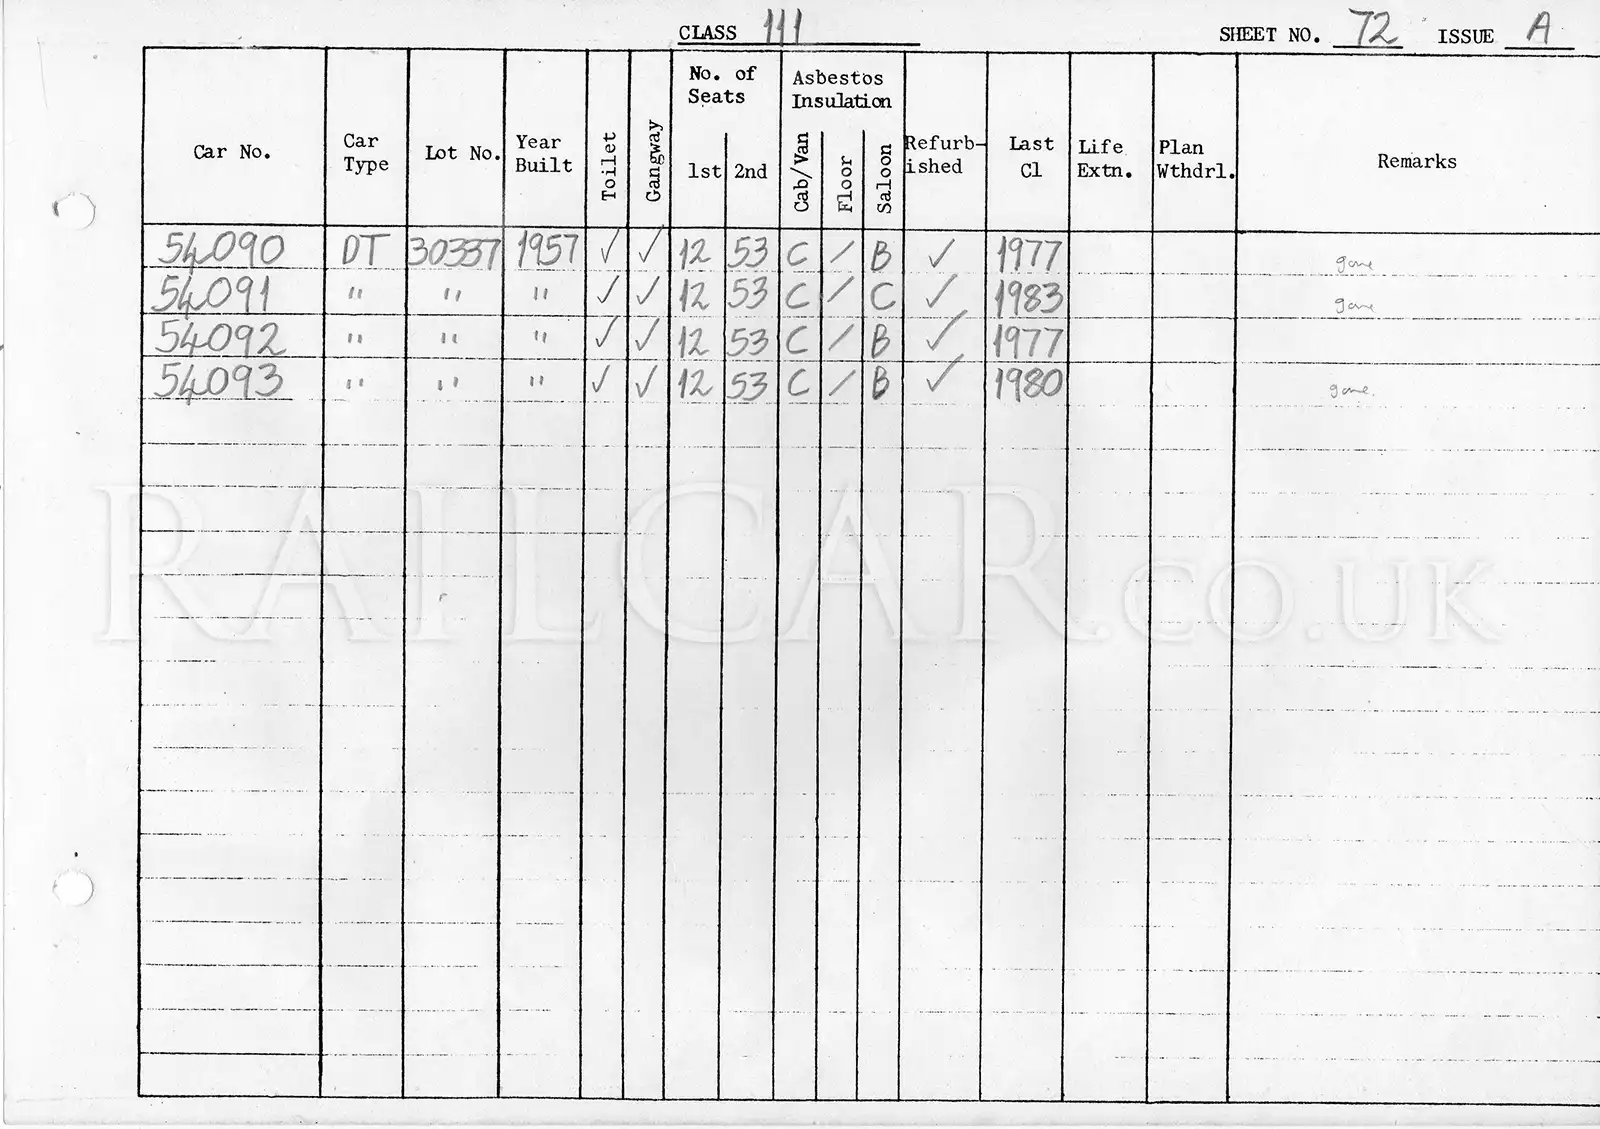 CLASS 111 SHEET NO. 72 ISSUE A
No. of Seats Asbestos Insulation
Car No. Car Type Lot No. Year Built Toilet Gangway 1st 2nd Cab/Van Floor Saloon Refurb-ished Last Cl Life Extn. Plan Wthdrl. Remarks
54090 DT 30337 1957 ✓ ✓ 12 53 C / B ✓ 1977 gone
54091 " " " ✓ ✓ 12 53 C / C ✓ 1983 gone
54092 " " " ✓ ✓ 12 53 C / B ✓ 1977
54093 " " " ✓ ✓ 12 53 C / B ✓ 1980 gone.
RAILCAR.CO.UK